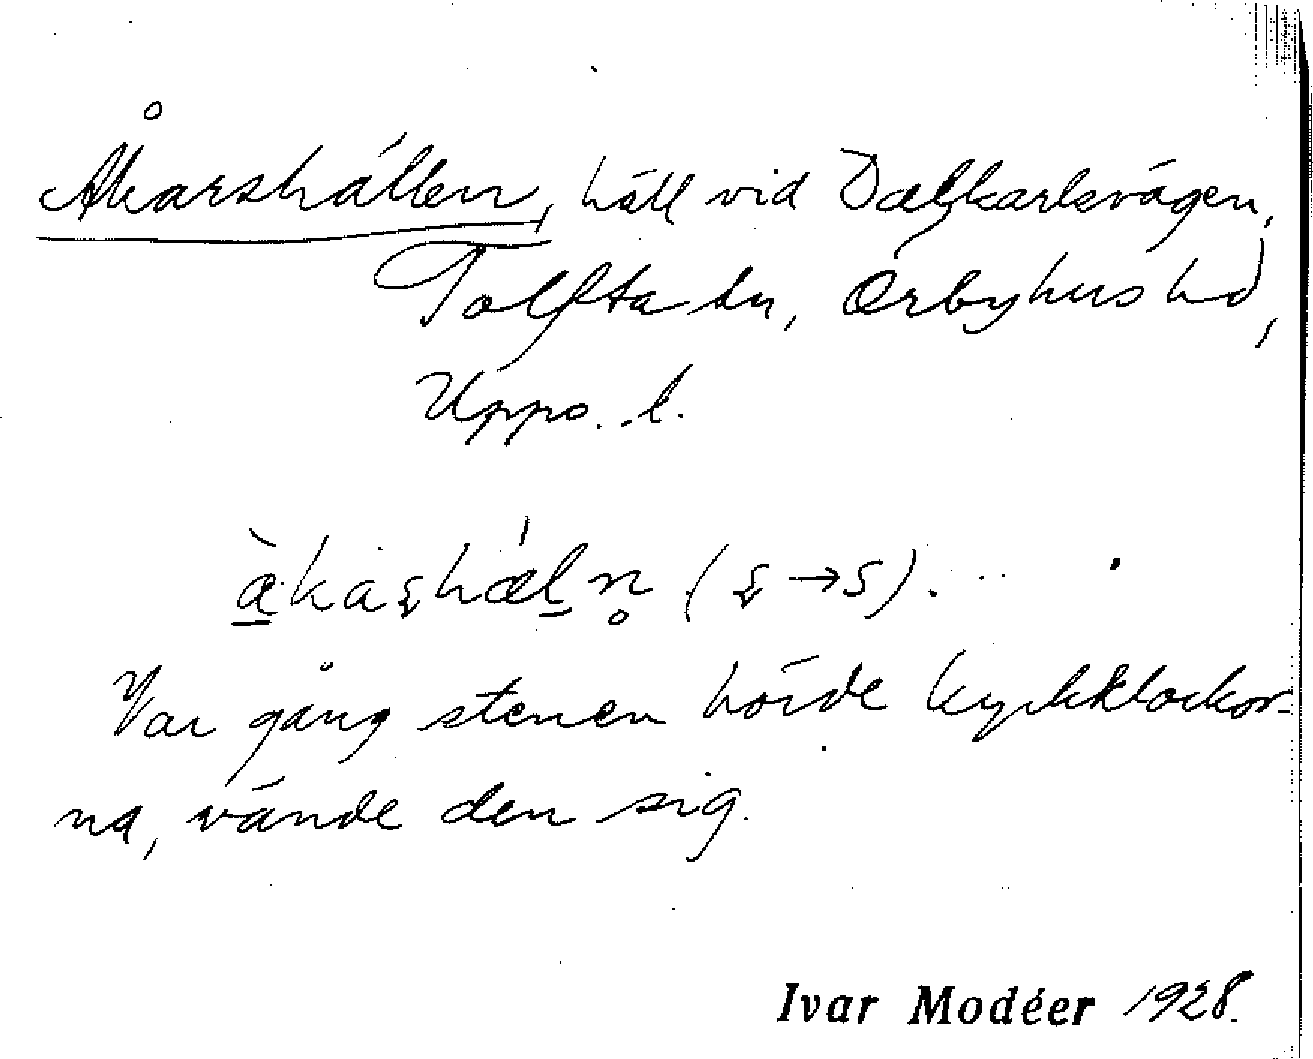 Åkarshällen, häll vid Dalkarlsvägen,
Tolfta sn, Örbyhus hd,
Upps. l.
Var gång stenen hörde kyrkklockor-
na, vände den sig.
Ivar Modéer 1928.